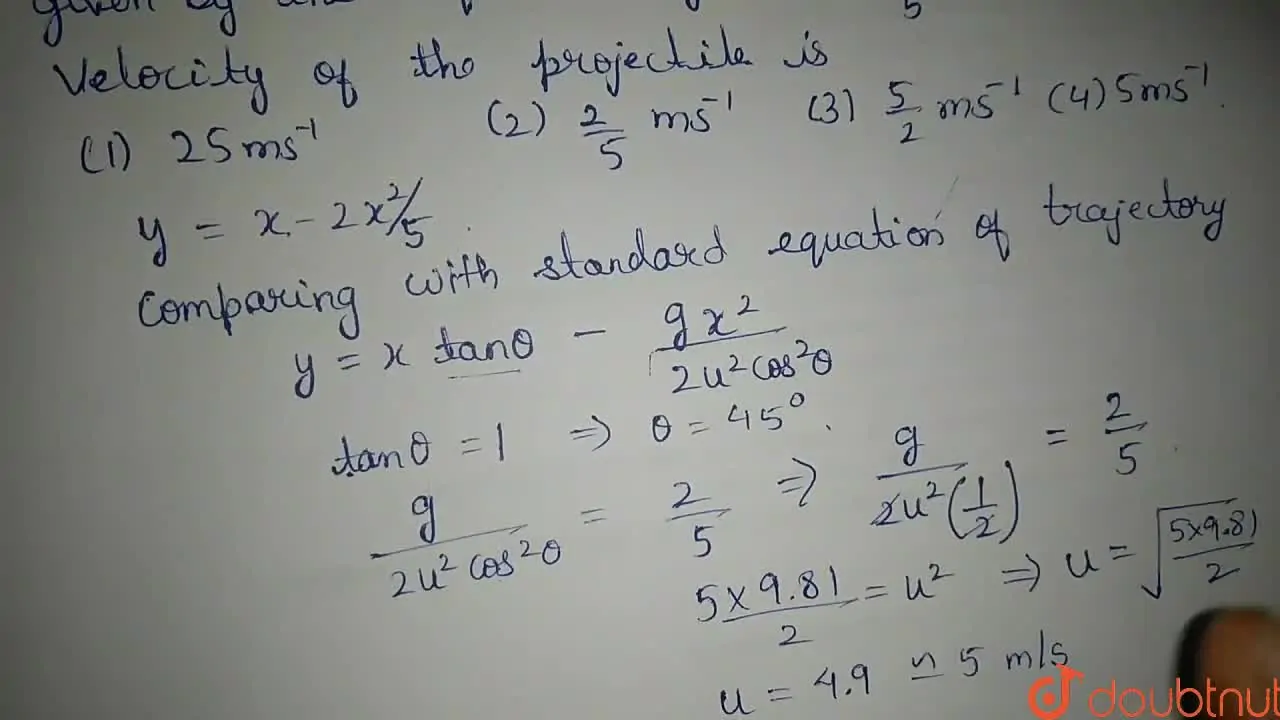 given by
5
Velocity of the projectile is
(1) 25 ms⁻¹ (2) 2/5 ms⁻¹ (3) 5/2 ms⁻¹ (4) 5 ms⁻¹.
y = x - 2x²/5.
Comparing with standard equation of trajectory
y = x tanθ - gx²/2u²cos²θ
tanθ = 1 ⇒ θ = 45°.
g/2u²cos²θ = 2/5 ⇒ g/2u²(1/2) = 2/5
5×9.81/2 = u² ⇒ u = √(5×9.81/2)
u = 4.9 ≃ 5 m/s
doubtnut